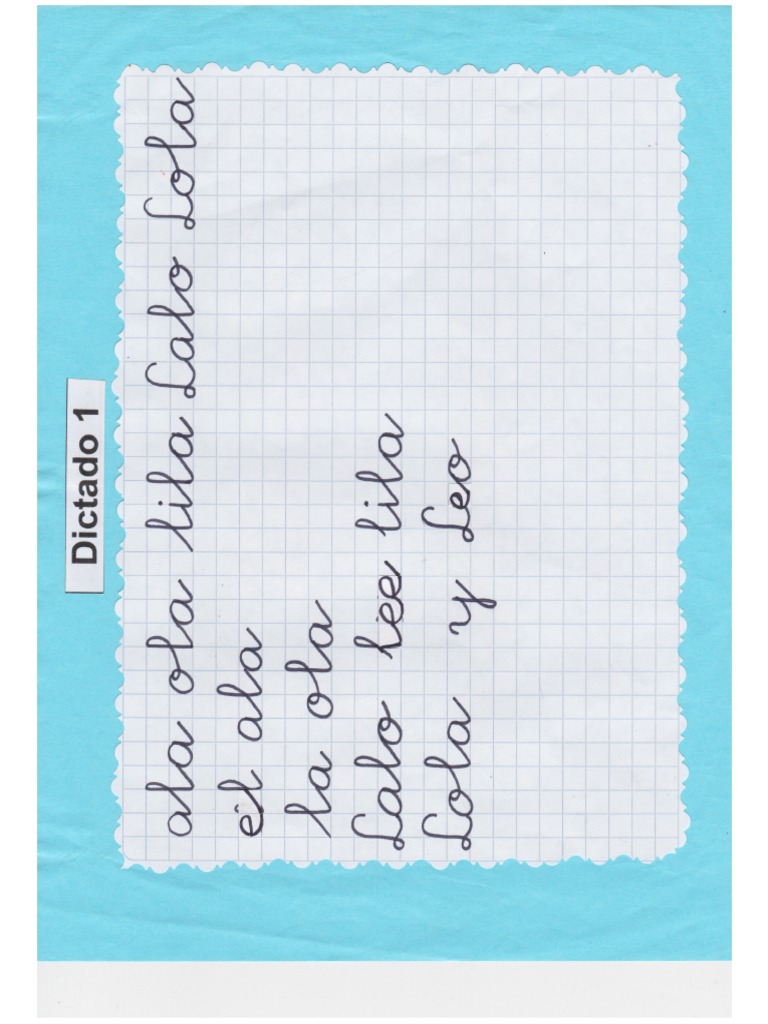 Dictado 1
ala ola lila Lalo Lola
el ala
la ola
Lalo lee lila
Lola y Leo